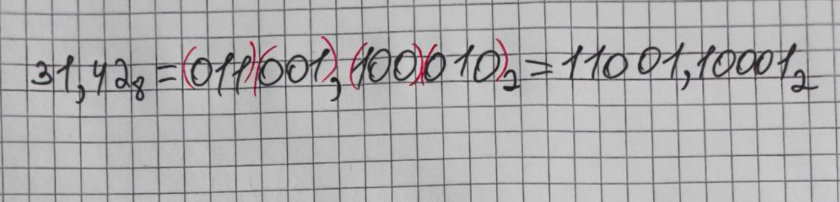 31,42₈=(011)(001),(100)(010)₂=11001,10001₂